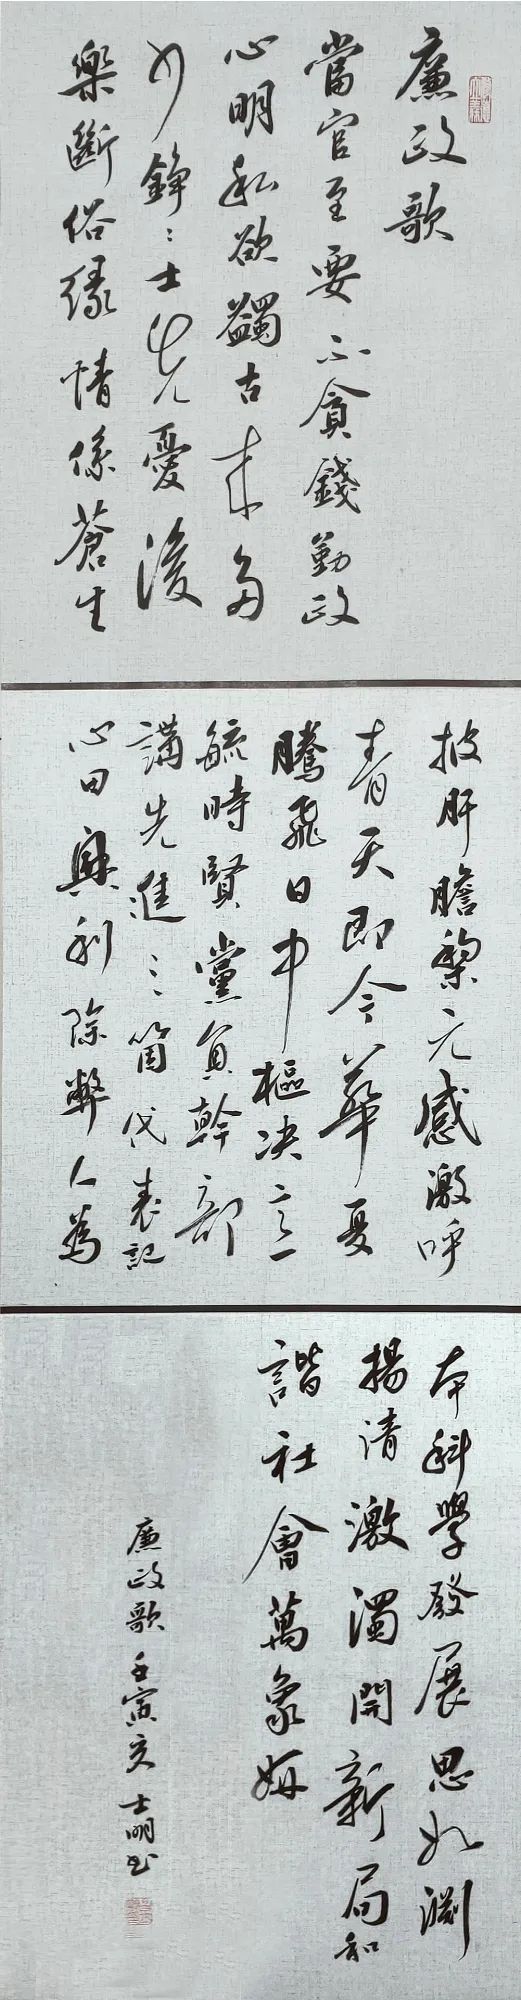 廉政歌
當官至要不貪錢勤政
心明私欲蠲古來多
少錚〻士先憂後
樂斷俗緣情係蒼生
披肝膽黎元感激呼
青天即今華夏
騰飛日中樞決意
毓時賢黨員幹部
講先進三箇代表記
心田興利除弊人為
本科學發展思如淵
揚清激濁開新局和
諧社會萬象妍
廉政歌 壬寅 士明書